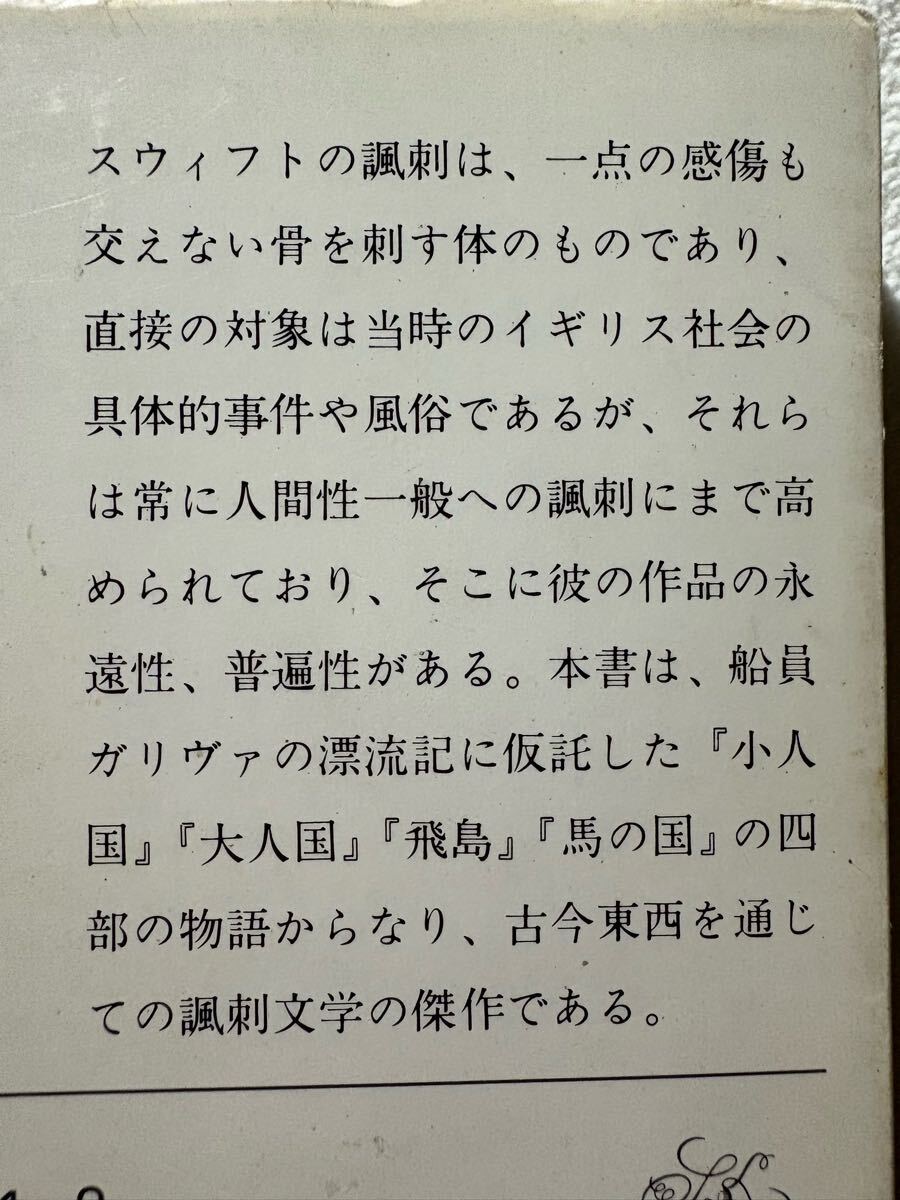 スウィフトの諷刺は、一点の感傷も
交えない骨を刺す体のものであり、
直接の対象は当時のイギリス社会の
具体的事件や風俗であるが、それら
は常に人間性一般への諷刺にまで高
められており、そこに彼の作品の永
遠性、普遍性がある。本書は、船員
ガリヴァの漂流記に仮託した『小人
国』『大人国』『飛島』『馬の国』の四
部の物語からなり、古今東西を通じ
ての諷刺文学の傑作である。